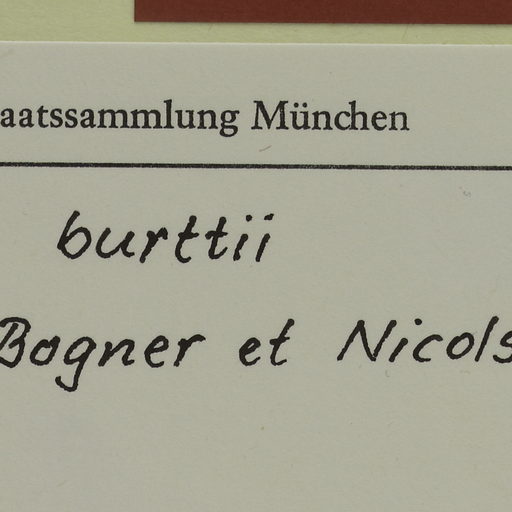 aatssammlung München
burttii
Bogner et Nicols